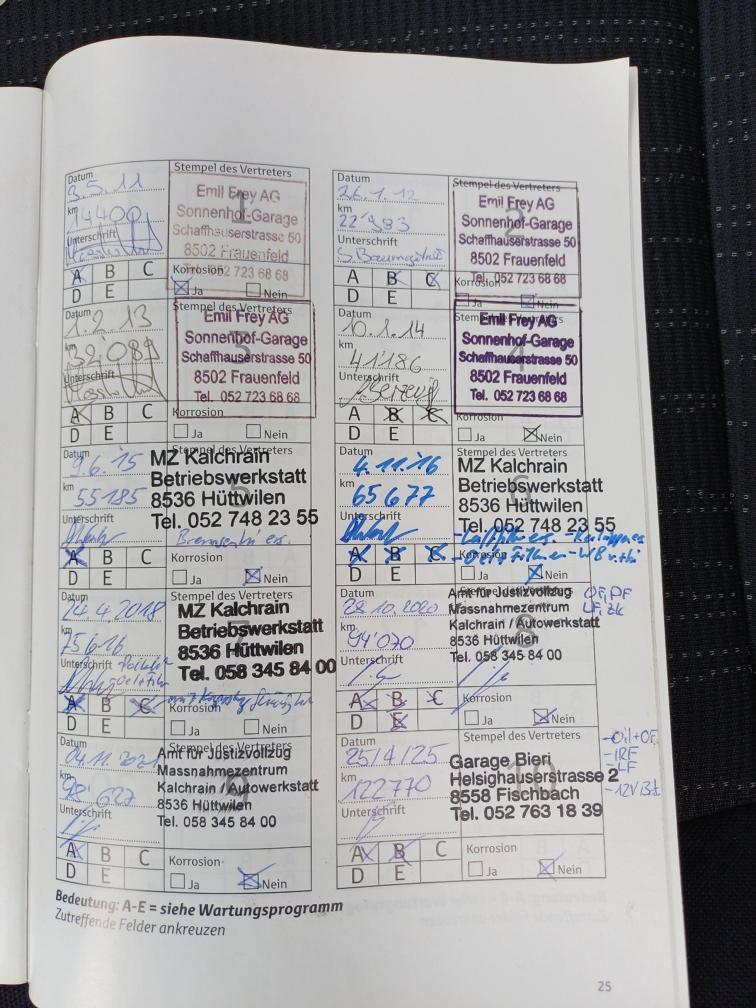 Datum
3.5.11
km
14400
Unterschrift
Stempel des Vertreters
1
Emil Frey AG
Sonnenhof-Garage
Schaffhauserstrasse 50
8502 Frauenfeld
Tel. 052 723 68 68
A B C
D E
Korrosion
Ja Nein
Datum
26.1.12
km
22'383
Unterschrift
Stempel des Vertreters
2
Emil Frey AG
Sonnenhof-Garage
Schaffhauserstrasse 50
8502 Frauenfeld
Tel. 052 723 68 68
A B C
D E
Korrosion
Ja Nein
Datum
1.2.13
km
32'089
Unterschrift
Stempel des Vertreters
3
Emil Frey AG
Sonnenhof-Garage
Schaffhauserstrasse 50
8502 Frauenfeld
Tel. 052 723 68 68
A B C
D E
Korrosion
Ja Nein
Datum
10.1.14
km
41'186
Unterschrift
4
Emil Frey AG
Sonnenhof-Garage
Schaffhauserstrasse 50
8502 Frauenfeld
Tel. 052 723 68 68
A B C
D E
Korrosion
Ja Nein
Datum
9.6.15
km
55185
Unterschrift
Stempel des Vertreters
MZ Kalchrain
Betriebswerkstatt
8536 Hüttwilen
Tel. 052 748 23 55
A B C
D E
Korrosion
Ja Nein
Datum
4.11.16
km
65677
Unterschrift
Stempel des Vertreters
6
MZ Kalchrain
Betriebswerkstatt
8536 Hüttwilen
Tel. 052 748 23 55
A B C
D E
Korrosion
Ja Nein
Datum
24.4.2018
km
75616
Unterschrift
Stempel des Vertreters
7
MZ Kalchrain
Betriebswerkstatt
8536 Hüttwilen
Tel. 058 345 84 00
A B C
D E
Korrosion
Ja Nein
Datum
28.10.2020
km
94'070
Unterschrift
8
Amt für Justizvollzug
Massnahmezentrum
Kalchrain / Autowerkstatt
8536 Hüttwilen
Tel. 058 345 84 00
ÖF, PF
LF, Zk
A B C
D E
Korrosion
Ja Nein
Datum
04.11.2021
km
98'627
Unterschrift
Stempel des Vertreters
9
Amt für Justizvollzug
Massnahmezentrum
Kalchrain / Autowerkstatt
8536 Hüttwilen
Tel. 058 345 84 00
A B C
D E
Korrosion
Ja Nein
Datum
25/4/25
km
122770
Unterschrift
Stempel des Vertreters
10
Garage Bieri
Helsighauserstrasse 2
8558 Fischbach
Tel. 052 763 18 39
-Oil+OF
-IRF
-LF
A B C
D E
Korrosion
Ja Nein
Bedeutung: A-E = siehe Wartungsprogramm
Zutreffende Felder ankreuzen
25